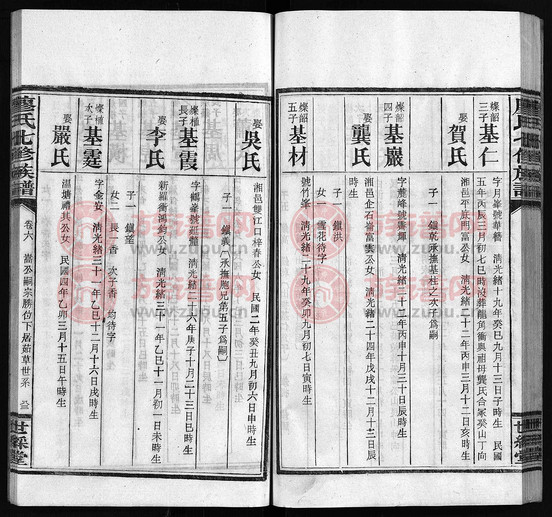 燦韶三子
基仁
字月峯號華藝 清光緒十九年癸巳九月十三日子時生 民國
五年丙辰三月初七巳時沒葬龍角衝與祖母龔氏合冢癸山丁向
娶
賀氏
湘邑平底門富公女 清光緒二十二年丙申三月十二日亥時生
子一 鎮乾承撫基柱之次子為嗣
燦韶四子
基巖
字蕙峰號善輝 清光緒二十二年丙申十月三十日辰時生
娶
龔氏
湘邑企石嵛富雲公女 清光緒二十四年戊戌十二月十三日辰時生
子一 鎮洪
女一 雪花待字
燦韶五子
基材
號竹峯 清光緒二十九年癸卯九月初七日寅時生
娶
吳氏
湘邑雙江口梓春公女 民國二年癸丑九月初六日申時生
子一 鎮 承撫胞兄第五子為嗣
燦植長子
基霞
字鶴峯號 清光緒二十六年庚子十月二十三日巳時生
娶
李氏
新羅衝鴻鈞公女 清光緒三十一年乙巳十一月初一日未時生
子一 鎮
燦植次子
基霆
字金安 清光緒三十一年乙巳十二月十六日戌時生
女二 長香 次子香 均待字
娶
嚴氏
濕塘禮其公女 民國四年乙卯三月十五日午時生
廖氏七修族譜
卷六 嵩公嗣宗勝位下居茹草世系
世綵堂
廖氏七修族譜
世綵堂
族譜網
www.zupu.cn